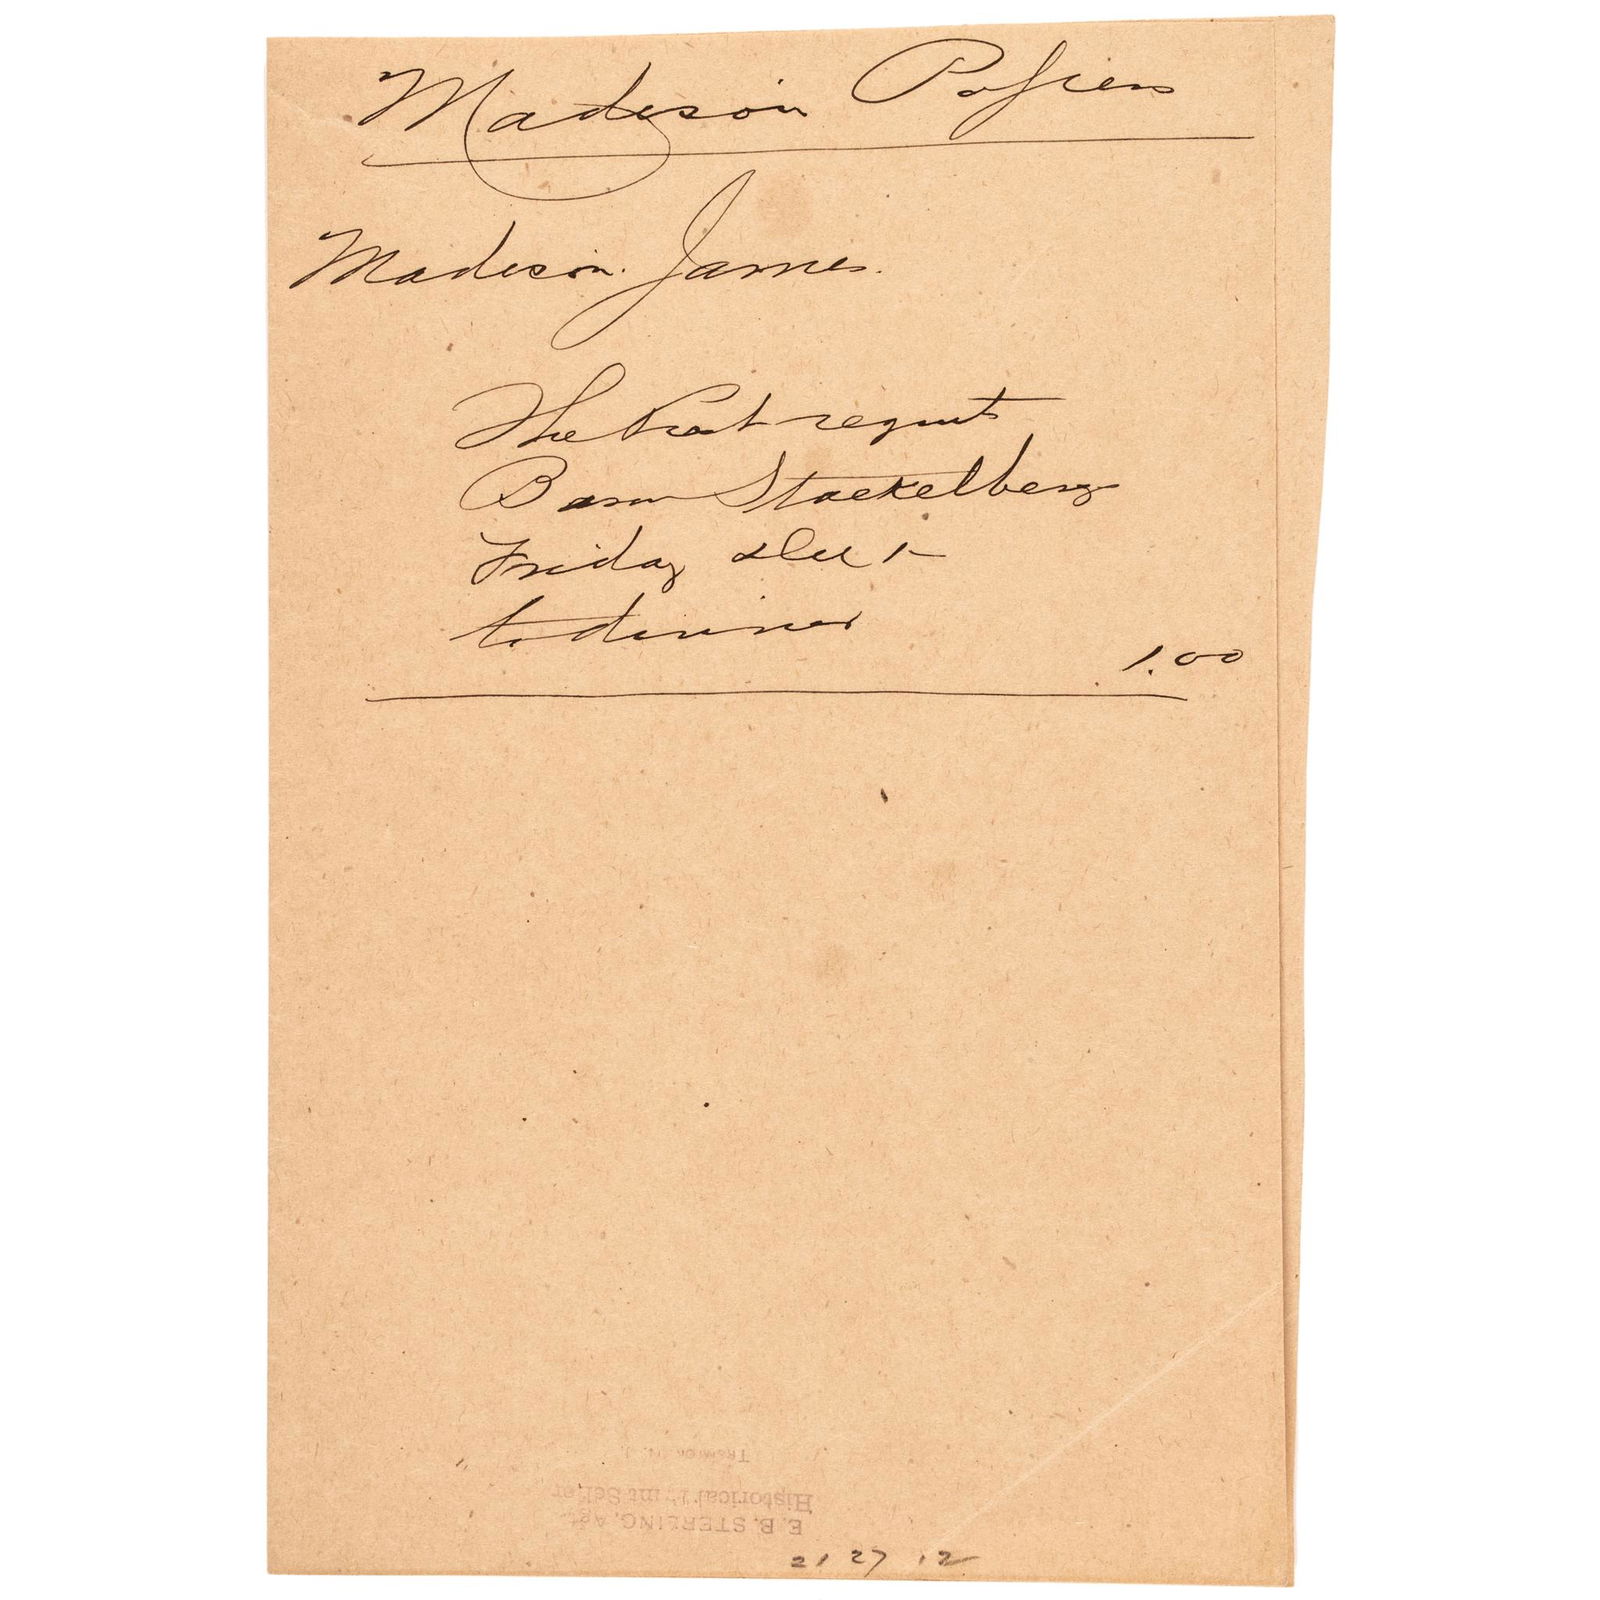 Madison Papers
Madison. James.
The Prest requests
Baron Stackelberg
Friday Dec 1
to dinner
1.00
Trenton N. J.
Historical Print Seller
E. B. STERLING, Agt.
21 27 12